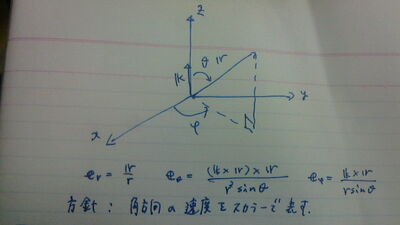 z
θ 𝕣
𝕜
y
x φ
𝕖r = 𝕣/r 𝕖θ = (𝕜×𝕣)×𝕣 / r²sinθ 𝕖φ = 𝕜×𝕣 / r sinθ
方針: 角方向の速度をスカラーで表す.